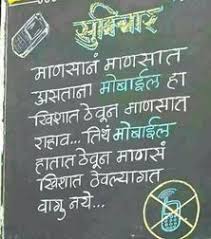 सुविचार
माणसानं माणसात
असताना मोबाईल हा
खिशात ठेवून माणसात
रहाव... तिथं मोबाईल
हातात ठेवून माणसं
खिशात ठेवल्यागत
वागु नये...